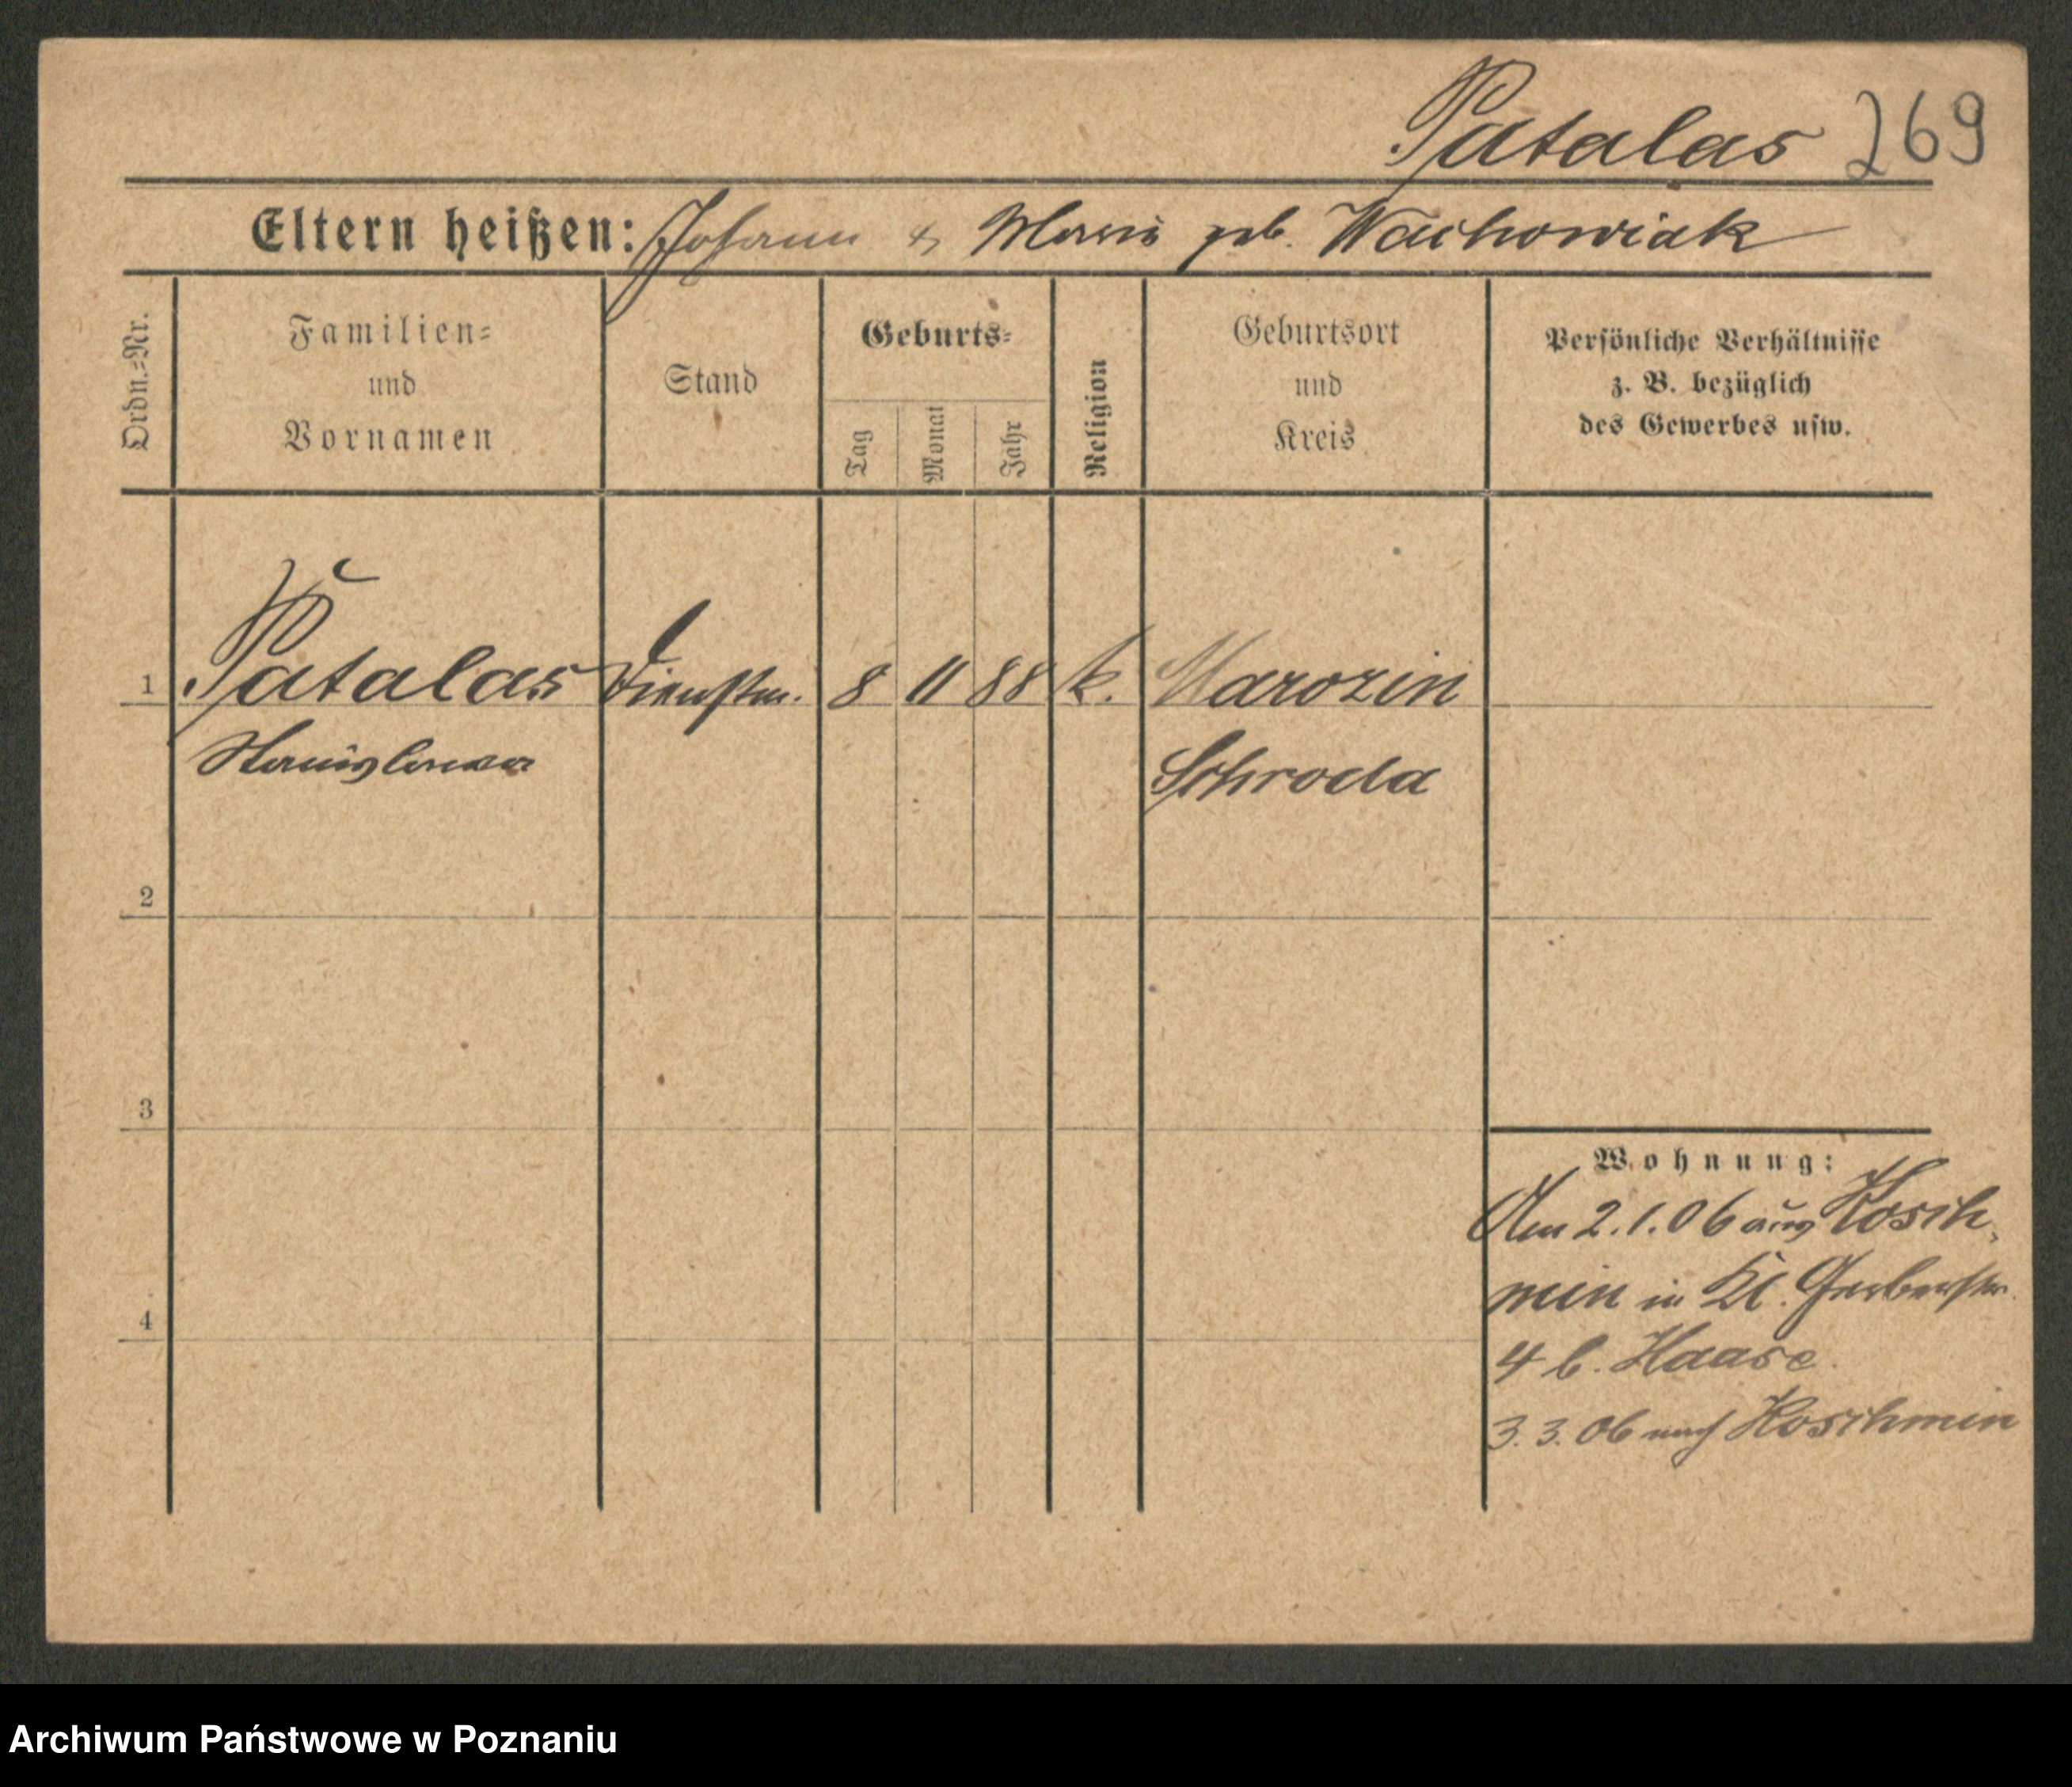 Patalas 269
Eltern heißen: Johann & Maria geb. Wachowiak
Ordn.=Nr.
Familien=
und
Vornamen
Stand
Geburts=
Tag
Monat
Jahr
Religion
Geburtsort
und
Kreis
Persönliche Verhältnisse
z. B. bezüglich
des Gewerbes usw.
1 Patalas Dienstm. 8 11 88 k. Marozin
Stanislawa Schroda
2
3
4
Wohnung:
Am 2.1.06 aus Kosch-
min in Kl. Gerberstr.
4 b. Haase.
3.3.06 nach Koschmin
Archiwum Państwowe w Poznaniu